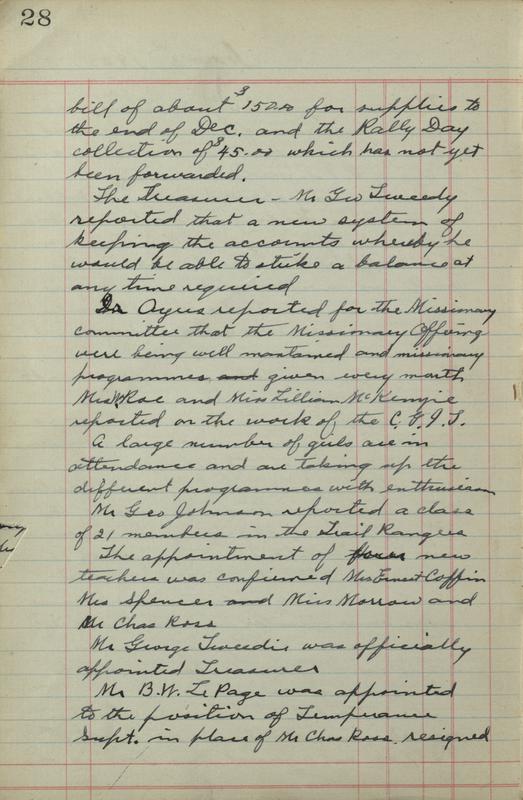 28
bill of about $150.00 for supplies to
the end of Dec. and the Rally Day
collection of $45.00 which has not yet
been forwarded.
The Treasurer - Mr Geo Tweedy
reported that a new system of
keeping the accounts whereby he
would be able to strike a balance at
any time required
Dr Ayers reported for the Missionary
committee that the Missionary Offering
were being well maintained and missionary
programmes and given every month
Miss Roe and Miss Lillian McKenzie
reported on the work of the C.G.I.T.
A large number of girls are in
attendance and are taking up the
different programmes with enthusiasm
Mr Geo Johnson reported a class
of 21 members in the Trail Rangers
The appointment of four new
teachers was confirmed Mrs Ernest Coffin
Mrs Spencer and Miss Morrow and
Mr Chas Ross
Mr George Tweedie was officially
appointed Treasurer
Mr B.W. LePage was appointed
to the position of Temperance
Supt. in place of Mr Chas Ross. resigned